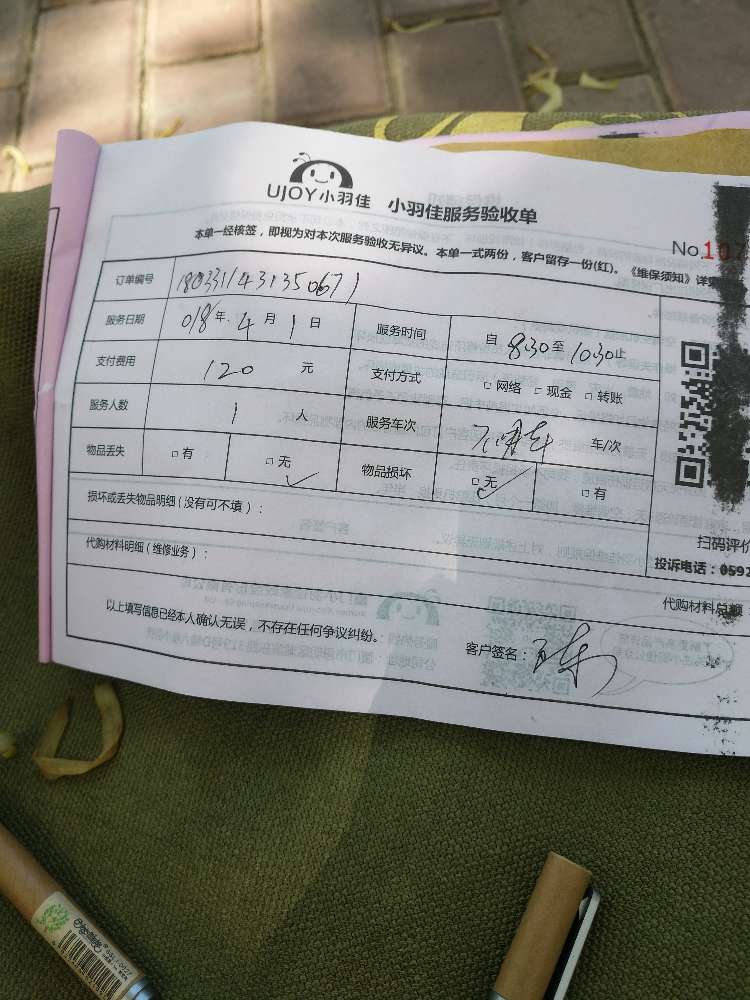 UJOY小羽佳 小羽佳服务验收单
本单一经核签，即视为对本次服务验收无异议。本单一式两份，客户留存一份(红)。《维保须知》详
No.107
订单编号 1803311431350671
服务日期 018年 4月 1日 服务时间 自 8:30至 10:30止
支付费用 120 元 支付方式 □网络 □现金 □转账
服务人数 1 人 服务车次 车/次
物品丢失 □有 □无 物品损坏 □无 □有
损坏或丢失物品明细(没有可不填)：
扫码评价
代购材料明细(维修业务)：
投诉电话：0592
代购材料总额
以上填写信息已经本人确认无误，不存在任何争议纠纷。 客户签名：